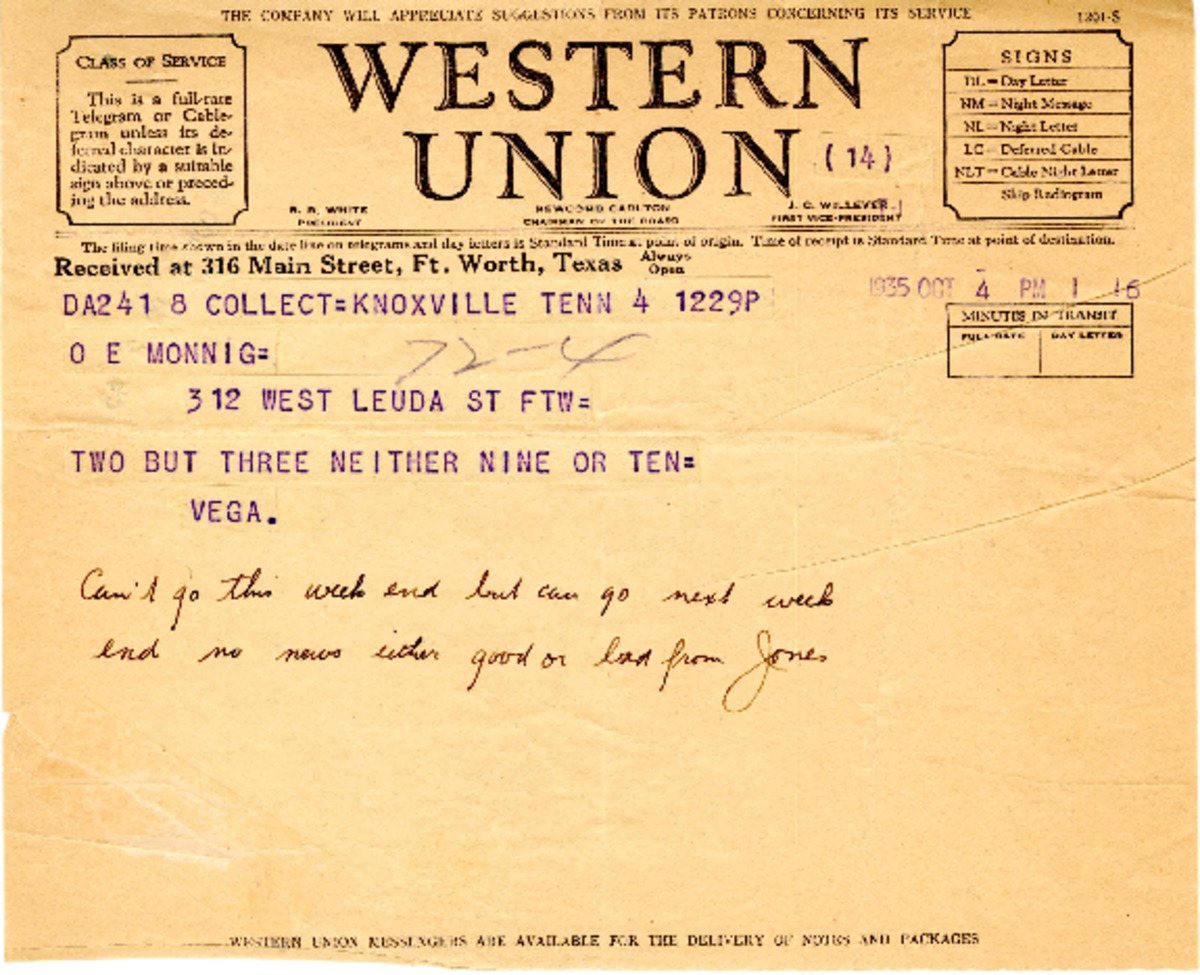 THE COMPANY WILL APPRECIATE SUGGESTIONS FROM ITS PATRONS CONCERNING ITS SERVICE
1201-S
CLASS OF SERVICE
This is a full-rate
Telegram or Cable-
gram unless its de-
ferred character is in-
dicated by a suitable
sign above or preced-
ing the address.
WESTERN
UNION
(14)
SIGNS
DL = Day Letter
NM = Night Message
NL = Night Letter
LC = Deferred Cable
NLT = Cable Night Letter
Ship Radiogram
R. B. WHITE
PRESIDENT
NEWCOMB CARLTON
CHAIRMAN OF THE BOARD
J. C. WILLEVER
FIRST VICE-PRESIDENT
The filing time shown in the date line on telegrams and day letters is Standard Time at point of origin. Time of receipt is Standard Time at point of destination.
Received at 316 Main Street, Ft. Worth, Texas Always Open
1935 OCT 4 PM 1 16
DA241 8 COLLECT=KNOXVILLE TENN 4 1229P
MINUTES IN TRANSIT
FULL-RATE DAY LETTER
O E MONNIG=
72-4
312 WEST LEUDA ST FTW=
TWO BUT THREE NEITHER NINE OR TEN=
VEGA.
Can't go this week end but can go next week
end no news either good or bad from Jones
WESTERN UNION MESSENGERS ARE AVAILABLE FOR THE DELIVERY OF NOTES AND PACKAGES